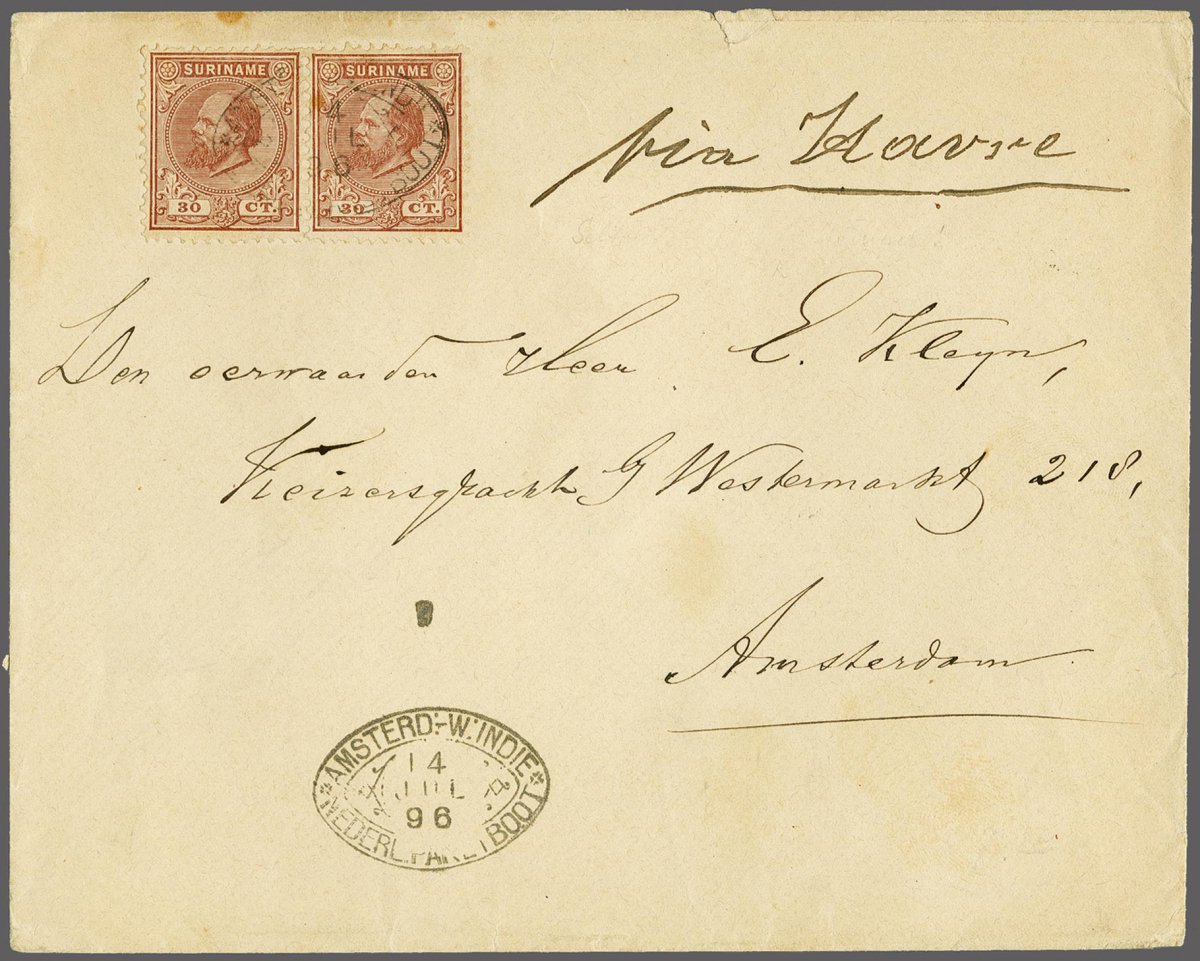 SURINAME SURINAME
30 CT. 30 CT.
via Havre
Den eerwaarden Heer E. Kleyn,
Keizersgracht Westermarkt 218,
Amsterdam
AMSTERD:-W:INDIE
14
JUL
96
NEDERL.PAKETBOOT